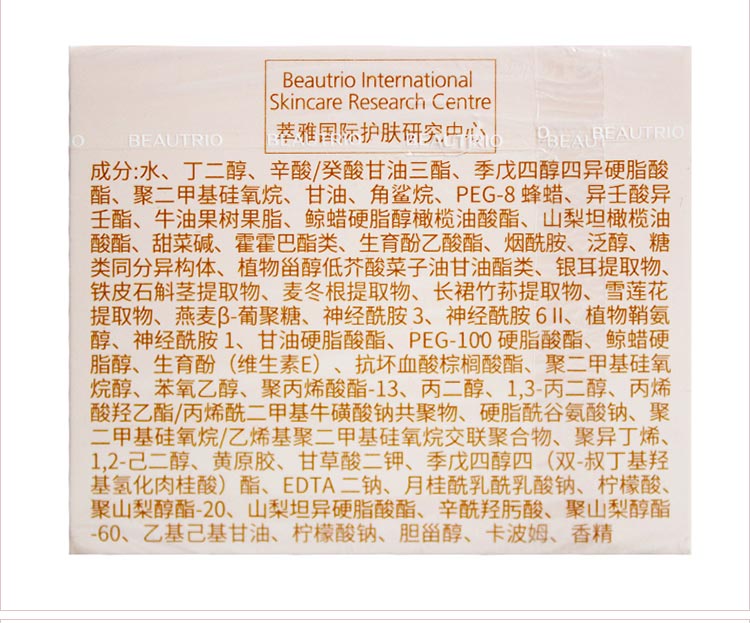 Beautrio International
Skincare Research Centre
萃雅国际护肤研究中心
BEAUTRIO
BEAUTRIO
成分:水、丁二醇、辛酸/癸酸甘油三酯、季戊四醇四异硬脂酸
酯、聚二甲基硅氧烷、甘油、角鲨烷、PEG-8 蜂蜡、异壬酸异
壬酯、牛油果树果脂、鲸蜡硬脂醇橄榄油酸酯、山梨坦橄榄油
酸酯、甜菜碱、霍霍巴酯类、生育酚乙酸酯、烟酰胺、泛醇、糖
类同分异构体、植物甾醇低芥酸菜子油甘油酯类、银耳提取物、
铁皮石斛茎提取物、麦冬根提取物、长裙竹荪提取物、雪莲花
提取物、燕麦β-葡聚糖、神经酰胺 3、神经酰胺 6 II、植物鞘氨
醇、神经酰胺 1、甘油硬脂酸酯、PEG-100 硬脂酸酯、鲸蜡硬
脂醇、生育酚（维生素E）、抗坏血酸棕榈酸酯、聚二甲基硅氧
烷醇、苯氧乙醇、聚丙烯酸酯-13、丙二醇、1,3-丙二醇、丙烯
酸羟乙酯/丙烯酰二甲基牛磺酸钠共聚物、硬脂酰谷氨酸钠、聚
二甲基硅氧烷/乙烯基聚二甲基硅氧烷交联聚合物、聚异丁烯、
1,2-己二醇、黄原胶、甘草酸二钾、季戊四醇四（双-叔丁基羟
基氢化肉桂酸）酯、EDTA 二钠、月桂酰乳酰乳酸钠、柠檬酸、
聚山梨醇酯-20、山梨坦异硬脂酸酯、辛酰羟肟酸、聚山梨醇酯
-60、乙基己基甘油、柠檬酸钠、胆甾醇、卡波姆、香精